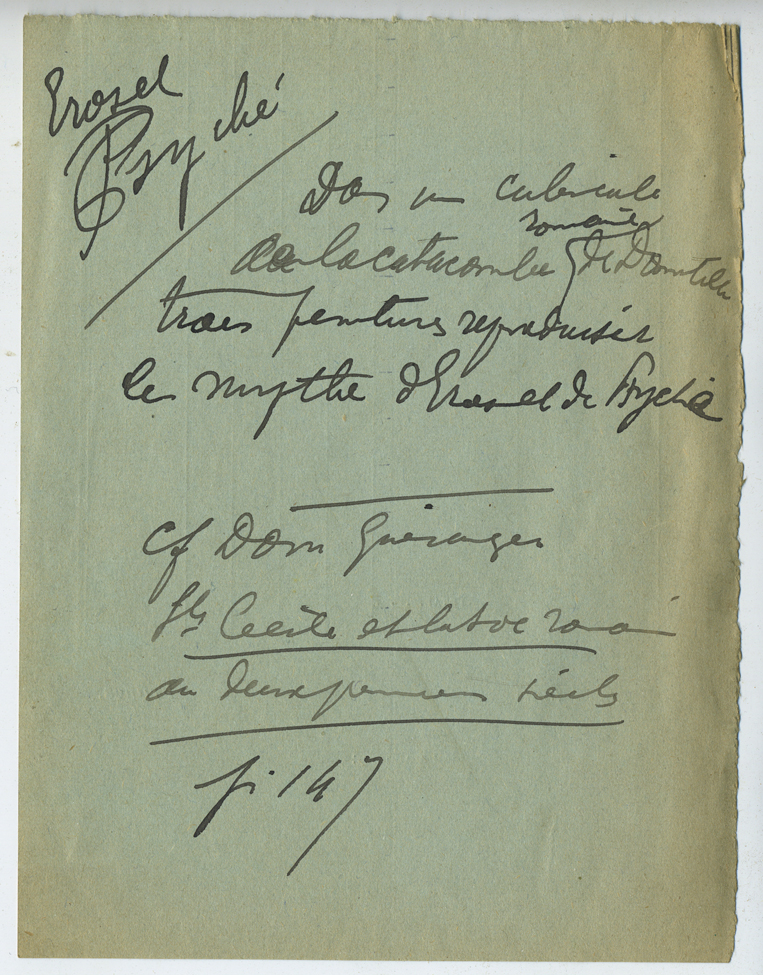 Eros et
Psyché
Dans un cubicule
romaine
de la catacombe de Domitille
trois peintures reproduisent
le mythe d'Eros et de Psyché
cf Dom Guéranger
Ste Cécile et la Soc romaine
aux deux premiers siècles
p. 147